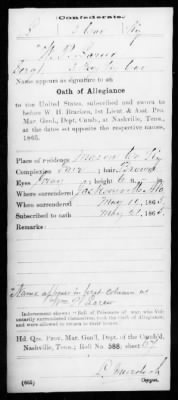 Confederate.
Cav Ky
Name appears as signature to an
Oath of Allegiance
to the United States, subscribed and sworn to
before W. H. Bracken, 1st Lieut & Asst. Pro.
Mar. Gen'l, Dept. Cumb., at Nashville, Tenn.,
at the dates set opposite the respective names,
1865.
Place of residence Ky
Complexion Fair; hair Brown
Eyes Gray; height 6 ft. in.
Where surrendered Jacksonville Ala
When surrendered May 10, 1865
Subscribed to oath May 21, 1865
Remarks:
Name appears in first column as
Wm P Larew
Indorsement shows "Roll of Prisoners of war, who vol-
untarily surrendered themselves, took the oath of allegiance,
and were allowed to return to their homes."
Hd. Qrs. Prov. Mar. Gen'l. Dept. of the Cumb'd,
Nashville, Tenn.; Roll No. 588; sheet
(665) Copyist.